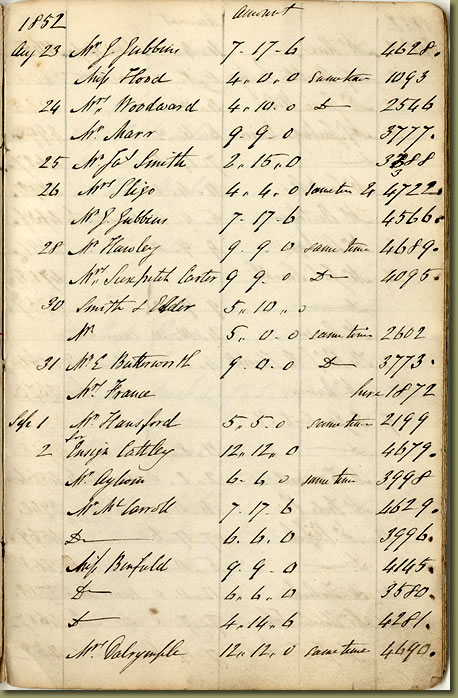 1852 Amount
Aug 23 Mr J. Jubbins 7-17-6 4628.
Miss Hood 4.0.0 sometime 1093
24 Mrs Woodward 4.10.0 Do 2546
Mr Marr 9-9-0 3777.
25 Mr Jas Smith 2.15.0
26 Mrs Sligo 4.4.0 sometime 4722.
Mr J. Jubbins 7-17-6 4566.
28 Mr Hawley 9-9-0 same time 4689.
Mrs Carter 9 9-0 Do 4095.
30 Smith & Elder 5.10.0
Mr 5.0-0 same time 2602
31 Mr E Butterworth 9.0.0 Do 3773.
Mrs France 1872
Sep 1 Mr Hansford 5.5.0 sometime 2199
for
2 Ensign Cattley 12.12.0 4679.
Mr 6-6.0 same time 3998
Mr McCarroll 7.17.6 4629.
Do 6.6.0 3996.
Miss Binfield 9.9.0 4145.
Do 6.6.0 3580.
Do 4.14.6 4281.
Mrs Dalrymple 12.12.0 same time 4690.